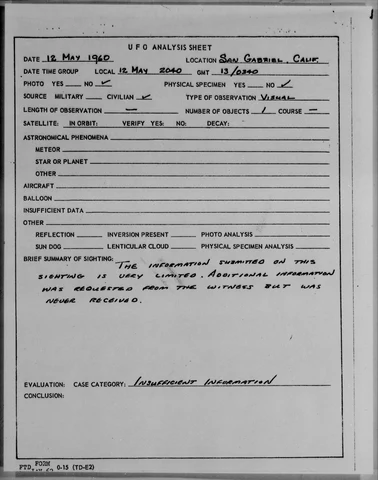 UFO ANALYSIS SHEET
DATE 12 MAY 1960 LOCATION SAN GABRIEL, CALIF.
DATE TIME GROUP LOCAL 12 MAY 2040 GMT 13/0340
PHOTO YES NO ✓ PHYSICAL SPECIMEN YES NO ✓
SOURCE MILITARY CIVILIAN ✓ TYPE OF OBSERVATION VISUAL
LENGTH OF OBSERVATION — NUMBER OF OBJECTS 1 COURSE —
SATELLITE: IN ORBIT: VERIFY YES: NO: DECAY:
ASTRONOMICAL PHENOMENA
METEOR
STAR OR PLANET
OTHER
AIRCRAFT
BALLOON
INSUFFICIENT DATA
OTHER
REFLECTION INVERSION PRESENT PHOTO ANALYSIS
SUN DOG LENTICULAR CLOUD PHYSICAL SPECIMEN ANALYSIS
BRIEF SUMMARY OF SIGHTING: THE INFORMATION SUBMITTED ON THIS
SIGHTING IS VERY LIMITED. ADDITIONAL INFORMATION
WAS REQUESTED FROM THE WITNESS BUT WAS
NEVER RECEIVED.
EVALUATION: CASE CATEGORY: INSUFFICIENT INFORMATION
CONCLUSION:
FTD FORM 0-15 (TD-E2)